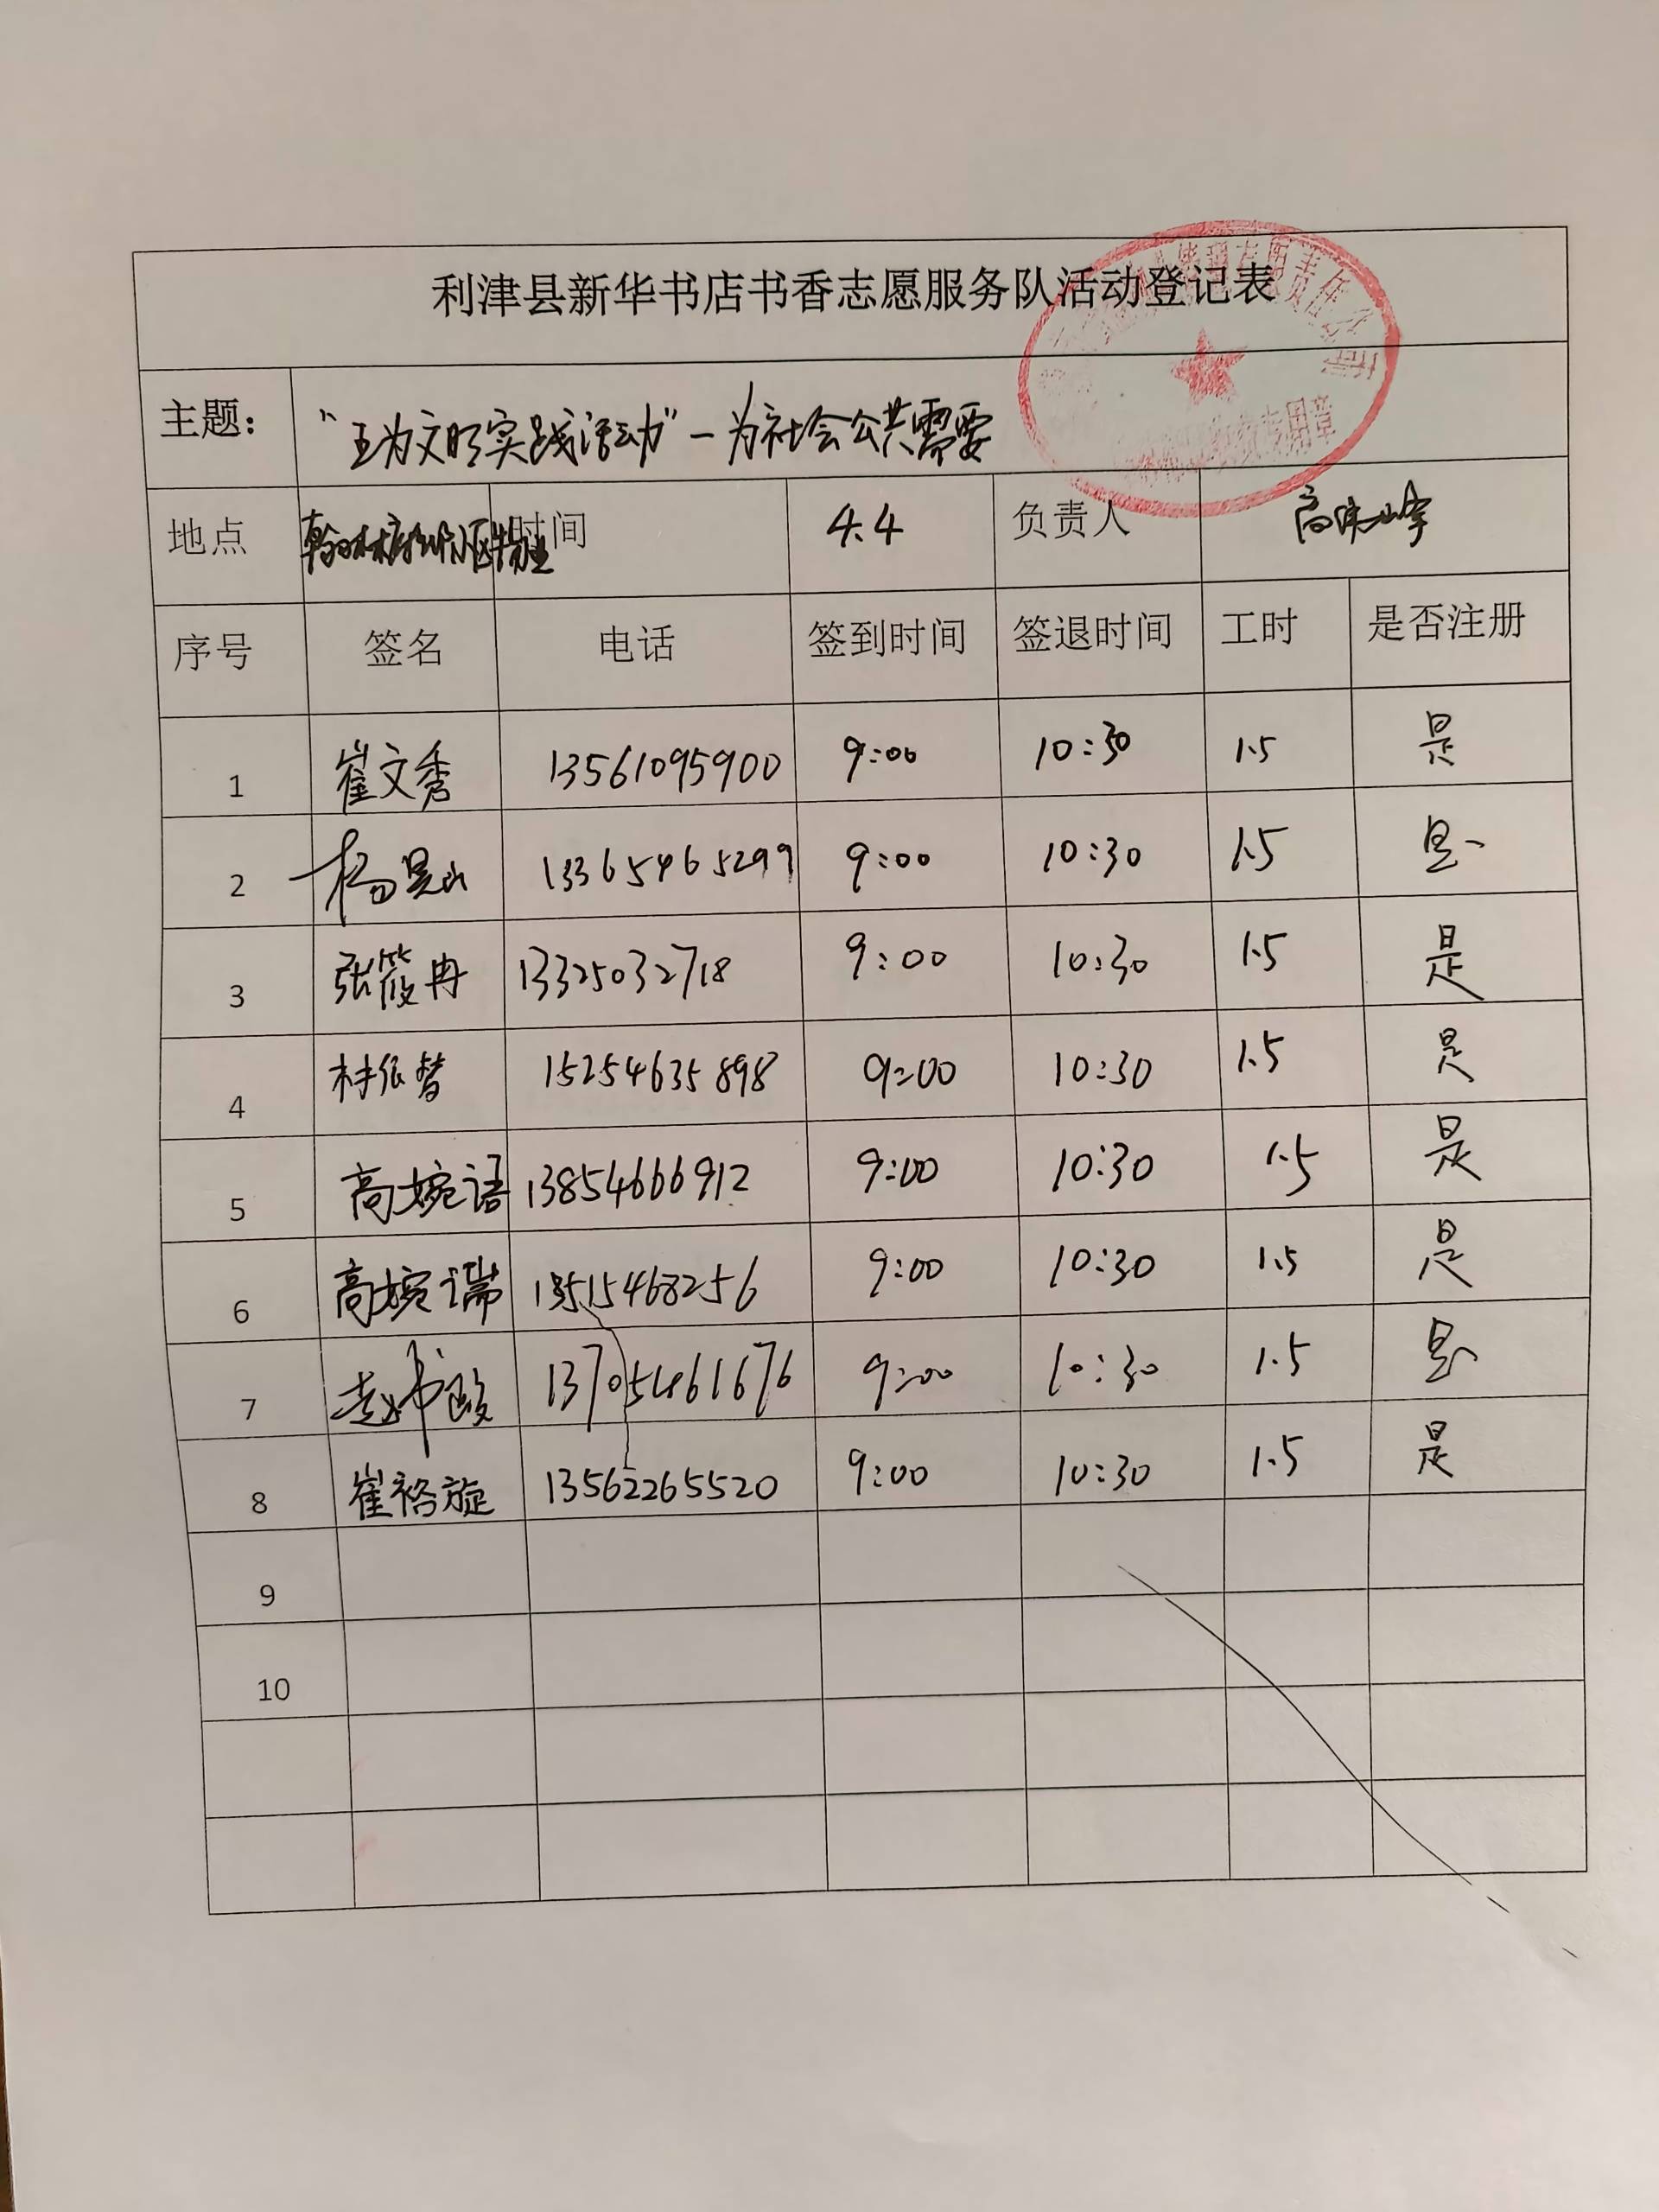 利津县新华书店书香志愿服务队活动登记表
主题： “五为文明实践活动”—为社会公共需要
地点 时间 4.4 负责人
序号 签名 电话 签到时间 签退时间 工时 是否注册
1 崔文秀 13561095900 9:00 10:30 1.5 是
2 杨昆山 13365465299 9:00 10:30 1.5 是
3 张筱冉 13325032718 9:00 10:30 1.5 是
4 15254635898 9:00 10:30 1.5 是
5 高婉语 13854666912 9:00 10:30 1.5 是
6 高婉瑞 13515468256 9:00 10:30 1.5 是
7 赵书政 13705461676 9:00 10:30 1.5 是
8 崔裕旋 13562265520 9:00 10:30 1.5 是
9
10